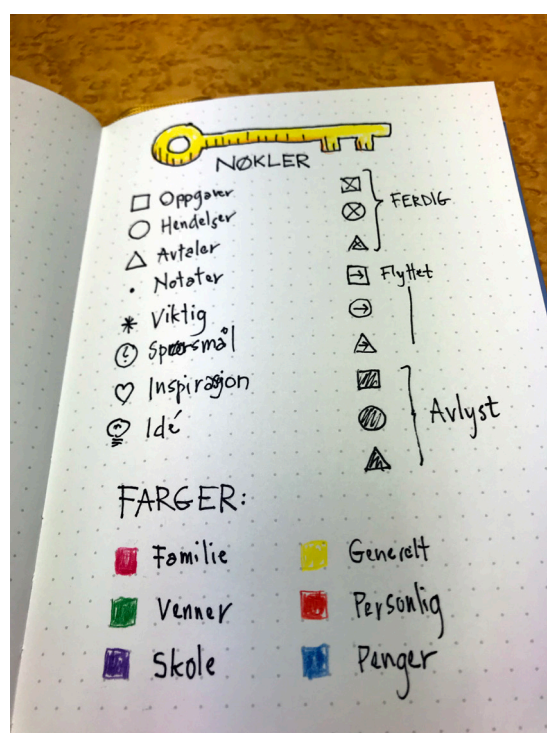 NØKLER
Oppgaver
Hendelser
Avtaler
Notater
Viktig
Spørsmål
Inspirasjon
Idé
FERDIG
Flyttet
Avlyst
FARGER:
Familie
Venner
Skole
Generelt
Personlig
Penger